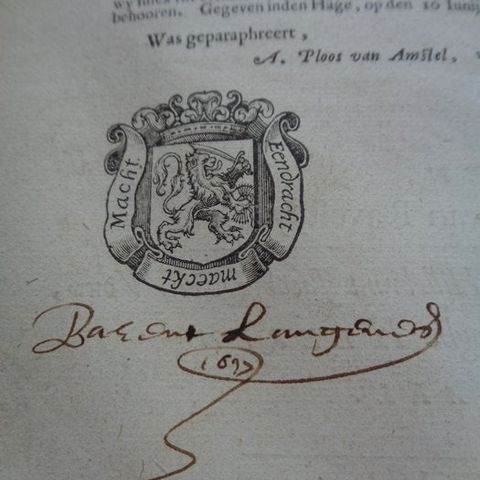 behooren. Gegeven inden Hage, op den 10 Iunij
Was geparaphreert,
A. Ploos van Amstel,
Eendracht
maeckt
Macht
Barent Langenes
1697